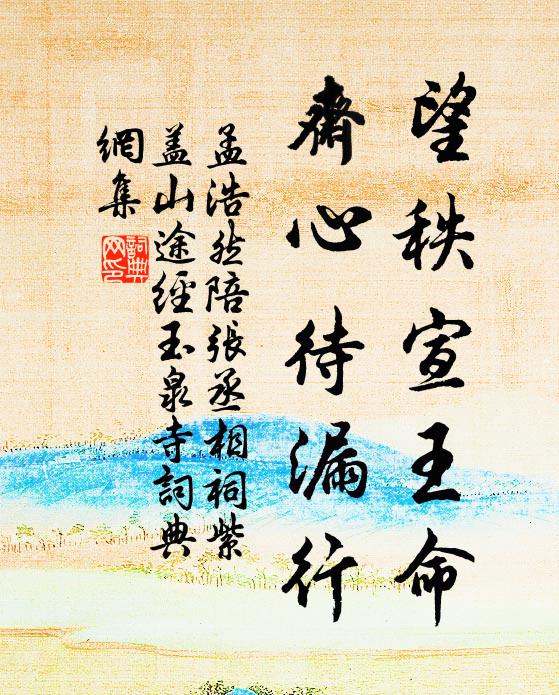 望秩宣王命
齋心待漏行
孟浩然陪張丞相祠紫
蓋山途經玉泉寺詞典
網集
詞典
网印